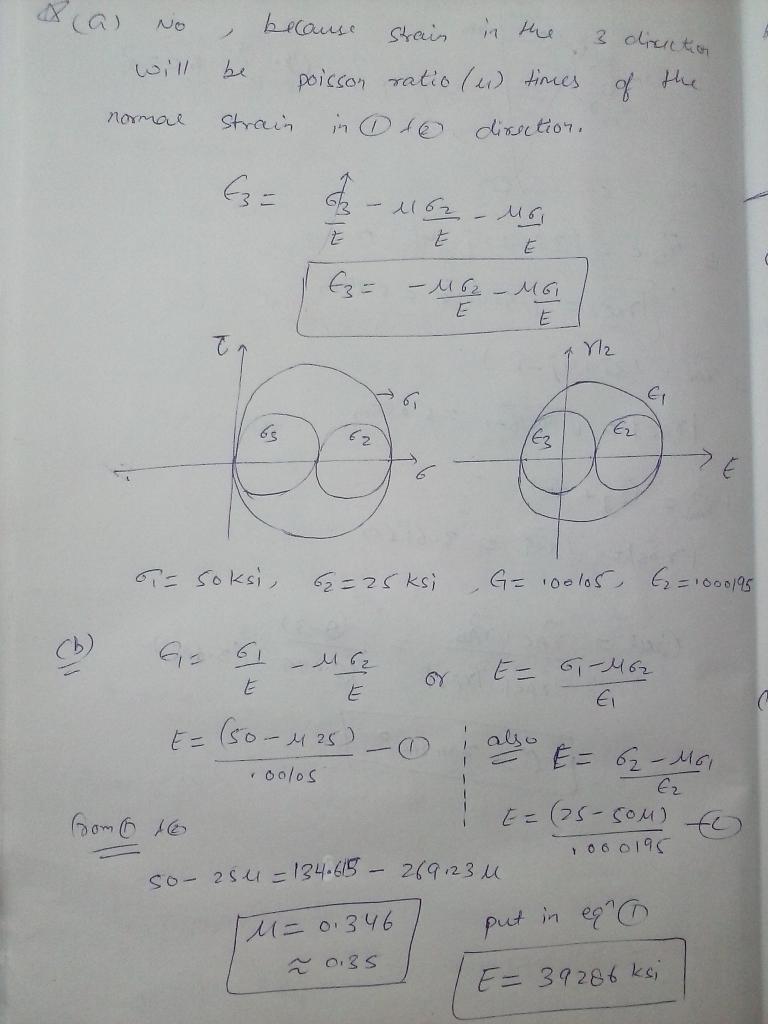 (a) No , because strain in the 3 direction
will be poisson ratio (μ) times of the
normal strain in ① & ② direction.
ϵ3 = σ3/E - μσ2/E - μσ1/E
ϵ3 = -μσ2/E - μσ1/E
τ
σ1
σ3
σ2
σ
γ/2
ϵ1
ϵ3
ϵ2
ϵ
σ1 = 50 ksi, σ2 = 25 ksi , ϵ1 = .00105, ϵ2 = .000195
(b) ϵ1 = σ1/E - μσ2/E or E = (σ1-μσ2)/ϵ1
E = (50 - μ25)/.00105 - ①
also E = (σ2-μσ1)/ϵ2
E = (25-50μ)/.000195 - ②
from ① & ②
50 - 25μ = 134.615 - 269.23μ
μ = 0.346
≈ 0.35
put in eqⁿ ①
E = 39286 ksi